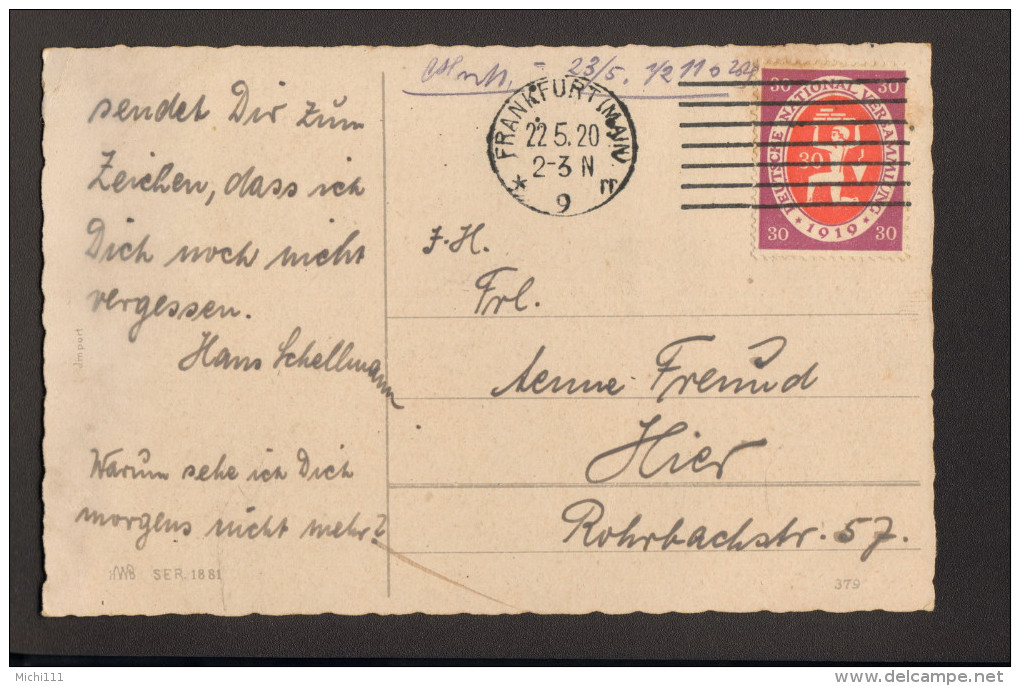 sendet Dir zum
Zeichen, dass ich
Dich noch nicht
vergessen.
Hans Schellmann
Warum sehe ich Dich
morgens nicht mehr?
Jmport
SER. 1881
23/5. 1/2 11
FRANKFURT (MAIN)
22.5.20
2-3 N
* 9 E
30 30
DEUTSCHE NATIONAL VERSAMMLUNG
30
* 1919 *
30 30
z. H.
Frl.
Aenne Freund
Hier
Rohrbachstr. 57.
379
Michi111